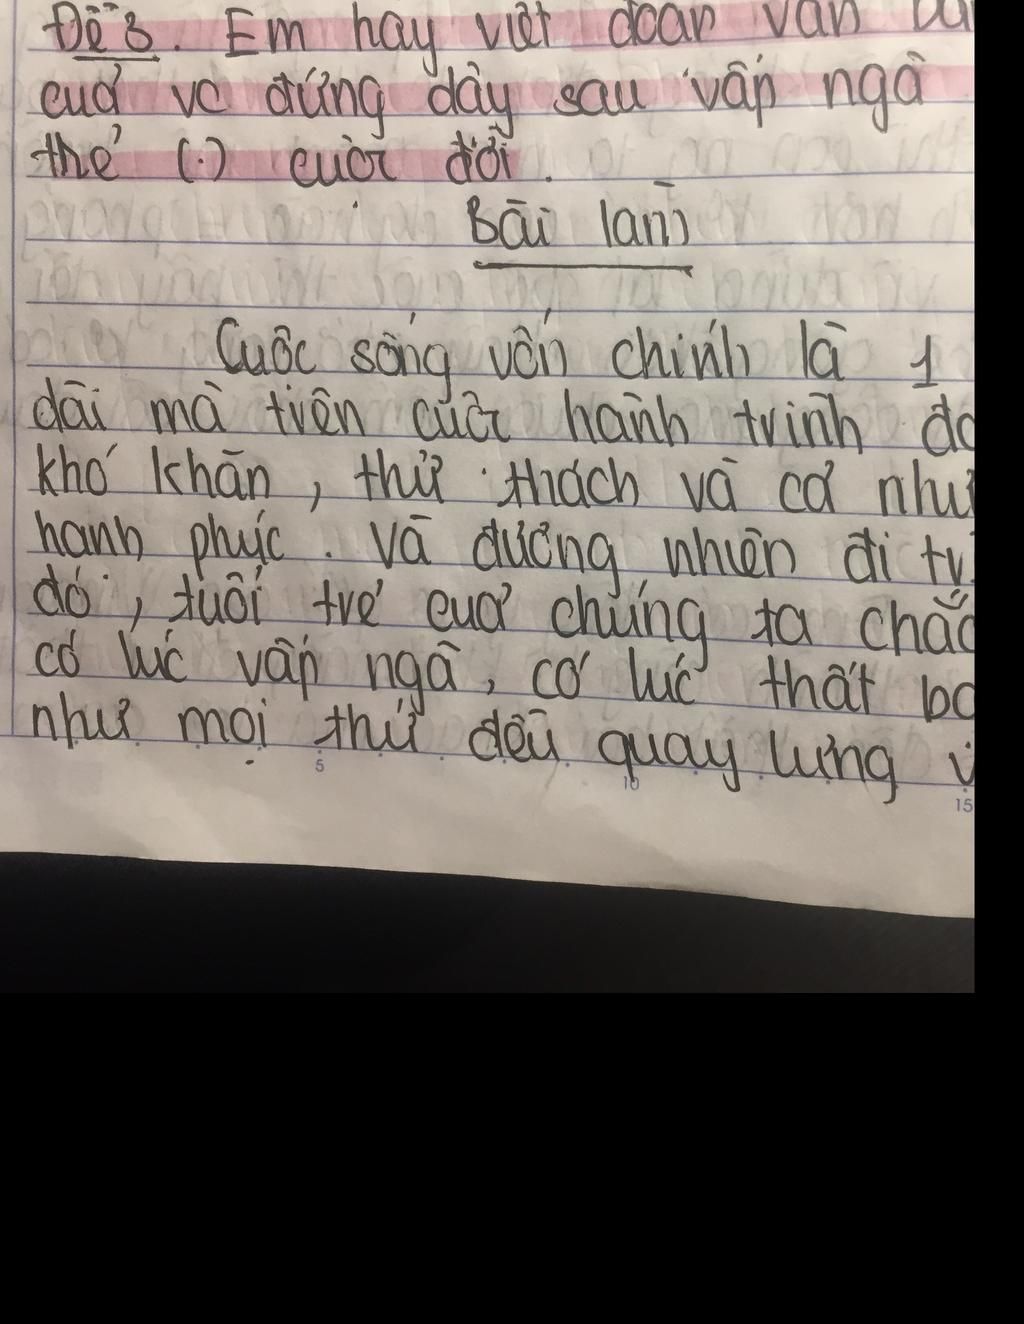 Đề 3. Em hãy viết đoạn văn
của vc đứng dậy sau vấp ngã
thế (.) cuộc đời.
Bài làm
Cuộc sống vốn chính là 1
dài mà trên cuộc hành trình đó
khó khăn, thử thách và có như
hạnh phúc. Và đương nhiên đi tr
đó, tuổi trẻ của chúng ta chắc
có lúc vấp ngã, có lúc thất bạ
như mọi thứ đều quay lưng v
5
10
15